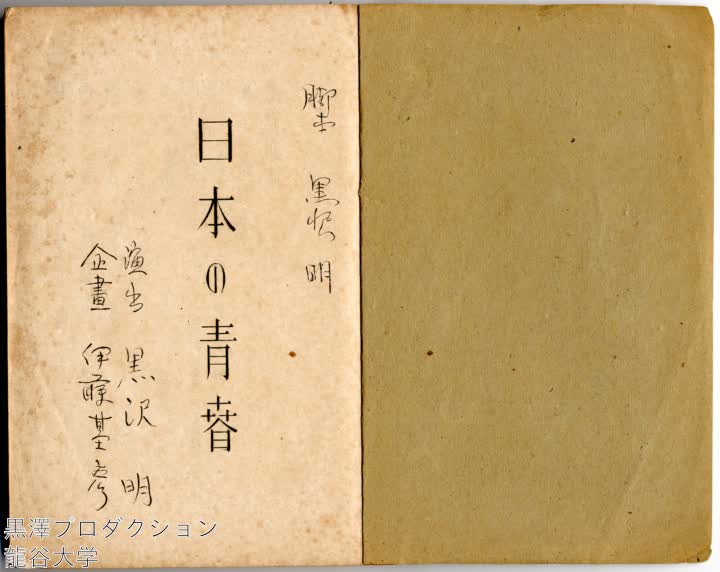 脚本 黒沢 明
日本の青春
演出 黒沢 明
企畫 伊藤基彦
黒澤プロダクション
龍谷大学